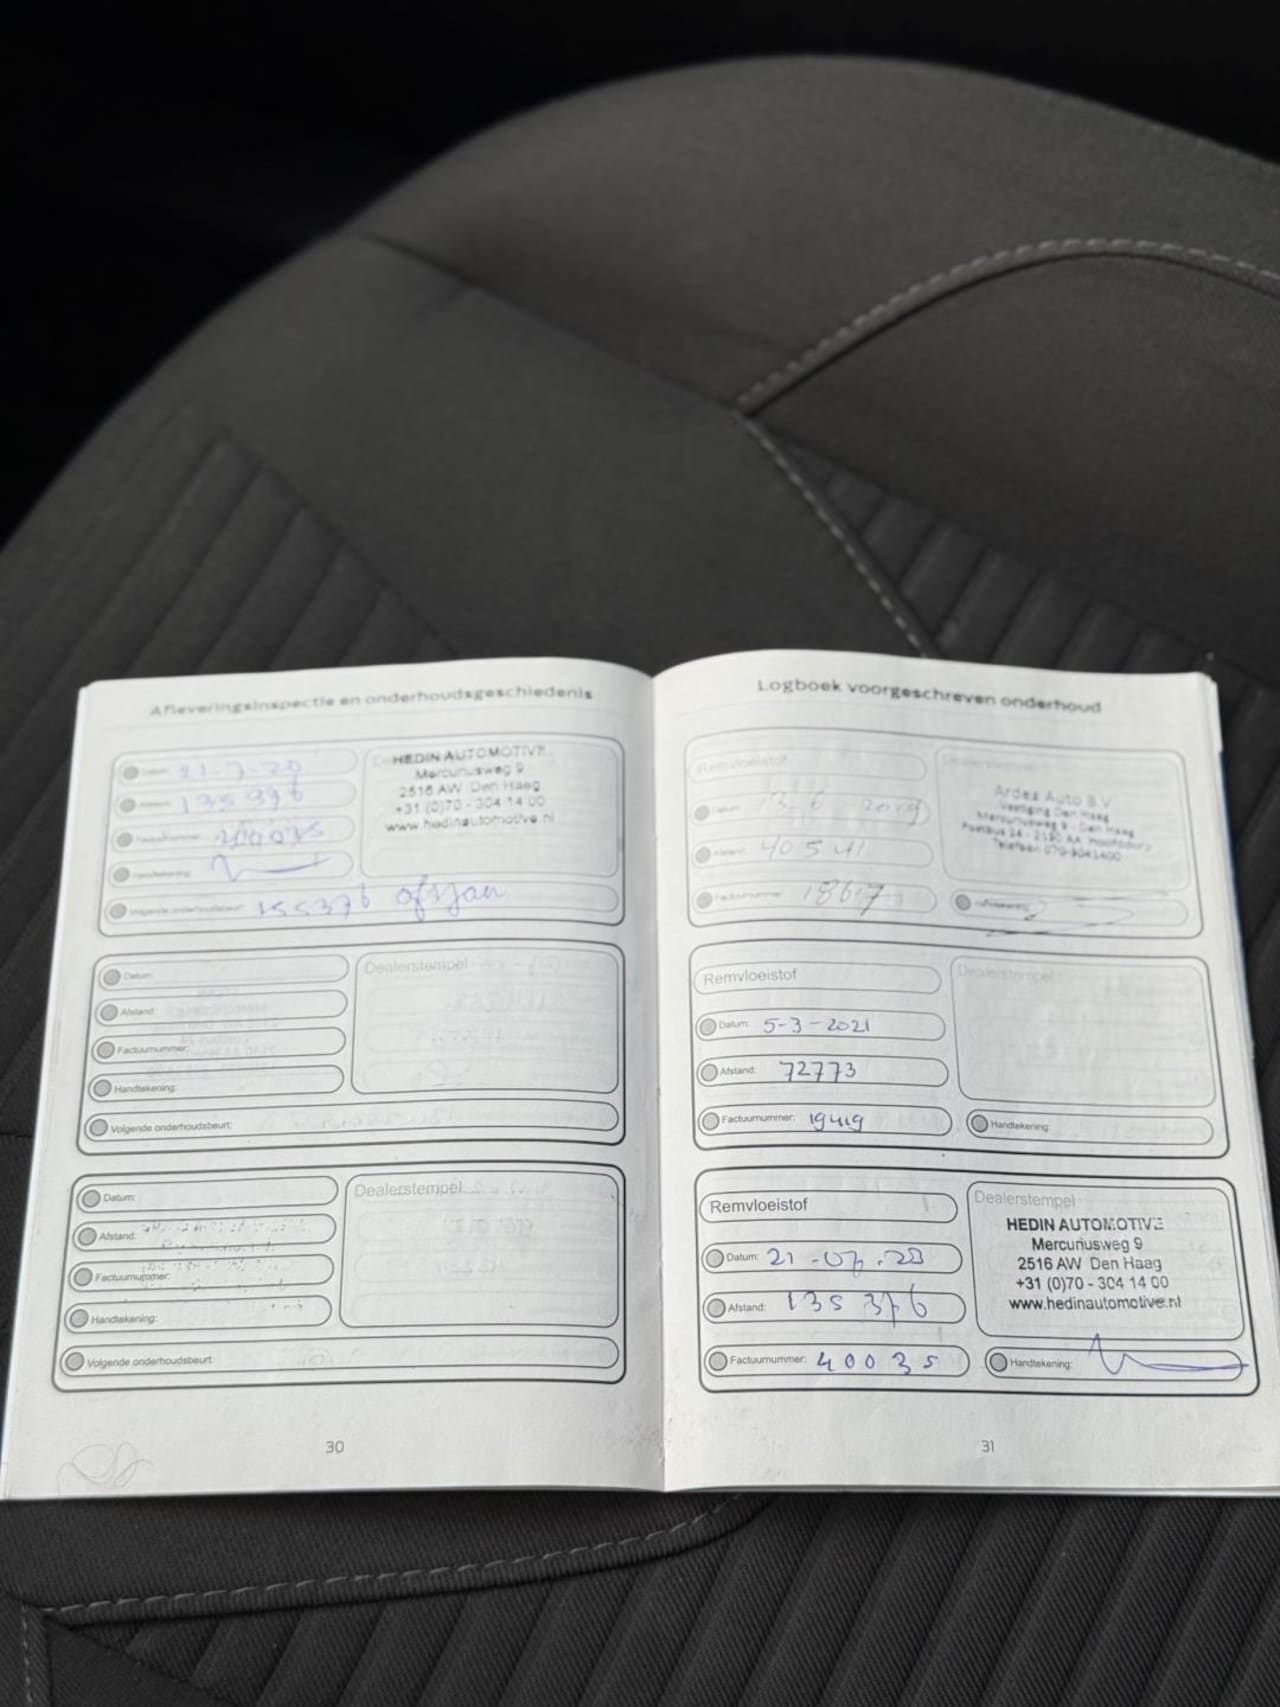 Afleveringsinspectie en onderhoudsgeschiedenis
Datum:
HEDIN AUTOMOTIVE
Mercuriusweg 9
2516 AW Den Haag
+31 (0)70 - 304 14 00
www.hedinautomotive.nl
Afstand: 135376
Factuurnummer:
Handtekening:
Volgende onderhoudsbeurt: 155376 of 1 jaar
Datum:
Dealerstempel
Afstand:
Factuurnummer:
Handtekening:
Volgende onderhoudsbeurt:
Datum:
Dealerstempel
Afstand:
Factuurnummer:
Handtekening:
Volgende onderhoudsbeurt:
30
Logboek voorgeschreven onderhoud
Remvloeistof
Dealerstempel
Datum: 13-6-2019
Ardea Auto B.V.
Vestiging Den Haag
Mercuriusweg 9 - Den Haag
Postbus 24 - 2130 AA Hoofddorp
Telefoon 070-3041400
Afstand: 40541
Factuurnummer: 18617
Remvloeistof
Dealerstempel
Datum: 5-3-2021
Afstand: 72773
Factuurnummer: 19419
Handtekening:
Remvloeistof
Dealerstempel
HEDIN AUTOMOTIVE
Mercuriusweg 9
2516 AW Den Haag
+31 (0)70 - 304 14 00
www.hedinautomotive.nl
Datum: 21-07-23
Afstand: 135376
Factuurnummer: 40035
Handtekening:
31